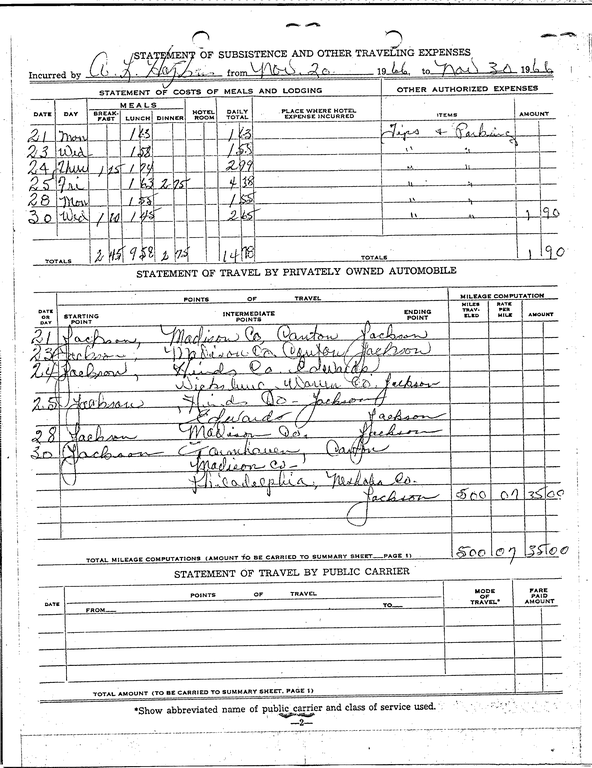 STATEMENT OF SUBSISTENCE AND OTHER TRAVELING EXPENSES
Incurred by A. L. Hopkins from Nov. 20 1966 to Nov 30 1966
STATEMENT OF COSTS OF MEALS AND LODGING OTHER AUTHORIZED EXPENSES
DATE DAY MEALS HOTEL ROOM DAILY TOTAL PLACE WHERE HOTEL EXPENSE INCURRED ITEMS AMOUNT
BREAK-FAST LUNCH DINNER
21 Mon 1 63 1 63 Tips & Parking
23 Wed 1 55 1 55 " "
24 Thurs 1 25 1 74 2 99 " "
25 Fri 1 63 2 75 4 38 " "
28 Mon 1 55 1 55 " "
30 Wed 1 20 1 45 2 65 " " 1 90
TOTALS 2 45 9 58 2 75 14 78 TOTALS 1 90
STATEMENT OF TRAVEL BY PRIVATELY OWNED AUTOMOBILE
DATE OR DAY POINTS OF TRAVEL MILEAGE COMPUTATION
STARTING POINT INTERMEDIATE POINTS ENDING POINT MILES TRAV-ELED RATE PER MILE AMOUNT
21 Jackson, Madison Co, Canton Jackson
23 Jackson, Madison Co, Canton Jackson
24 Jackson, Hinds Co. Edwards
Vicksburg, Warren Co. Jackson
25 Jackson, Hinds Co- Jackson
Edwards Jackson
28 Jackson Madison Co. Jackson
30 Jackson Canton
Madison Co-
Philadelphia, Neshoba Co.
Jackson 500 07 35 00
TOTAL MILEAGE COMPUTATIONS (AMOUNT TO BE CARRIED TO SUMMARY SHEET PAGE 1) 500 07 35 00
STATEMENT OF TRAVEL BY PUBLIC CARRIER
DATE POINTS OF TRAVEL MODE OF TRAVEL* FARE PAID AMOUNT
FROM TO
TOTAL AMOUNT (TO BE CARRIED TO SUMMARY SHEET, PAGE 1)
*Show abbreviated name of public carrier and class of service used.
—2—